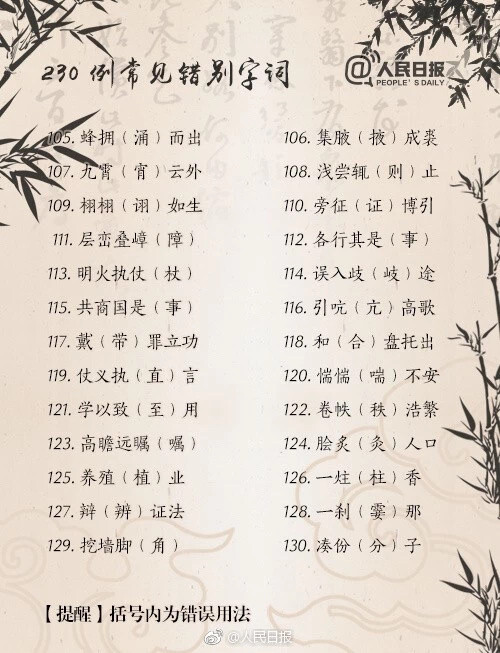 230 例常见错别字词
@人民日报
PEOPLE'S DAILY
105. 蜂拥（涌）而出
106. 集腋（掖）成裘
107. 九霄（宵）云外
108. 浅尝辄（则）止
109. 栩栩（诩）如生
110. 旁征（证）博引
111. 层峦叠嶂（障）
112. 各行其是（事）
113. 明火执仗（杖）
114. 误入歧（岐）途
115. 共商国是（事）
116. 引吭（亢）高歌
117. 戴（带）罪立功
118. 和（合）盘托出
119. 仗义执（直）言
120. 惴惴（喘）不安
121. 学以致（至）用
122. 卷帙（秩）浩繁
123. 高瞻远瞩（嘱）
124. 脍炙（灸）人口
125. 养殖（植）业
126. 一炷（柱）香
127. 辩（辨）证法
128. 一刹（霎）那
129. 挖墙脚（角）
130. 凑份（分）子
【提醒】括号内为错误用法
@人民日报